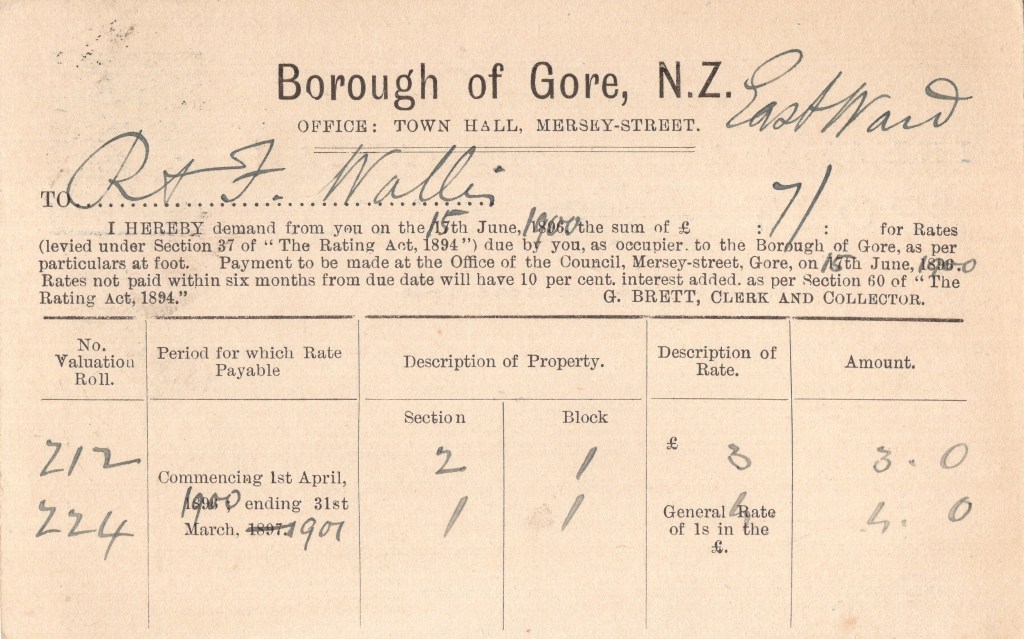 Borough of Gore, N.Z. East Ward
OFFICE: TOWN HALL, MERSEY-STREET.
TO R & F. Wallis
7/
I HEREBY demand from you on the 15th June, 1900 the sum of £ : : for Rates
(levied under Section 37 of "The Rating Act, 1894") due by you, as occupier. to the Borough of Gore, as per
particulars at foot. Payment to be made at the Office of the Council, Mersey-street, Gore, on 15th June, 1900
Rates not paid within six months from due date will have 10 per cent. interest added. as per Section 60 of "The
Rating Act, 1894." G. BRETT, CLERK AND COLLECTOR.
No. Valuation Roll. Period for which Rate Payable Description of Property. Description of Rate. Amount.
Section Block
212 2 1 £ 3 3. 0
Commencing 1st April,
1900 ending 31st
224 1 1 4 4. 0
March, 1897. 1901
General Rate
of 1s in the
£.